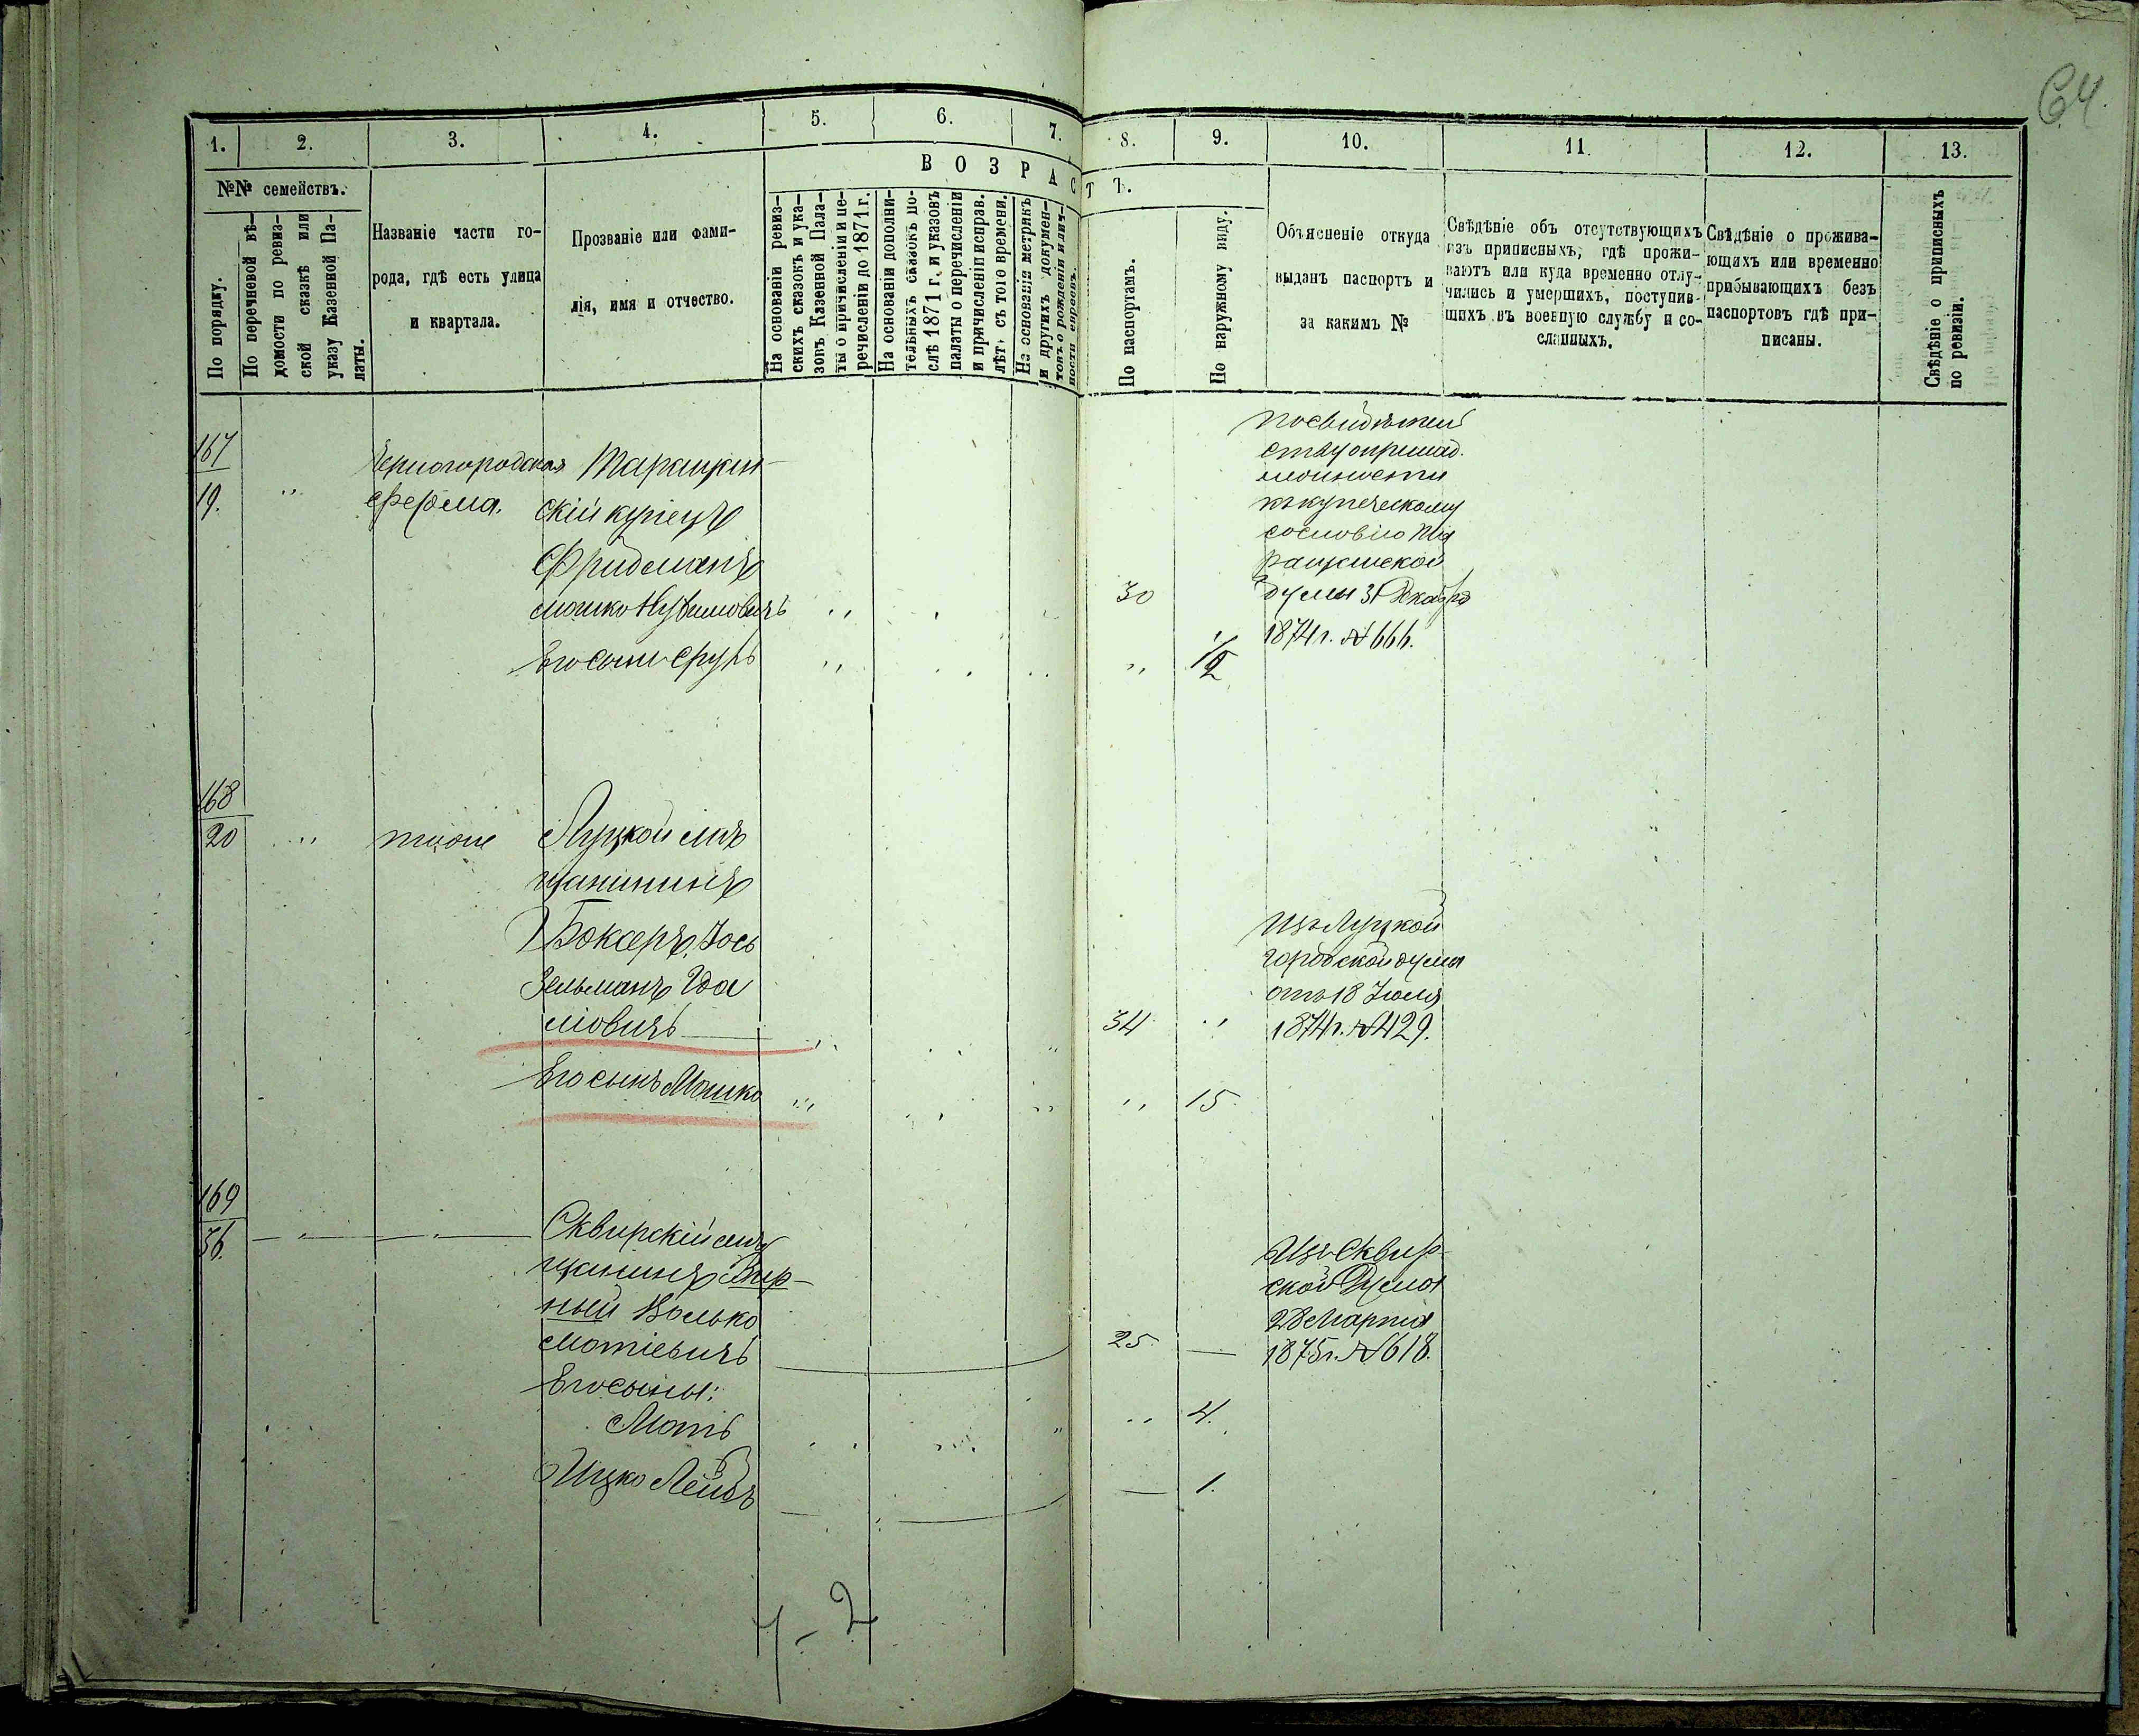 64.
1.
2.
3.
4.
5.
6.
7.
8.
9.
10.
11.
12.
13.
№№ семействъ.
По порядку.
По перечневой вѣ-
домости по ревиз-
ской сказкѣ или
указу Казенной Па-
латы.
Названіе части го-
рода, гдѣ есть улица
и квартала.
Прозваніе или фами-
лія, имя и отчество.
ВОЗРАСТЪ.
На основаніи ревиз-
скихъ сказокъ и ука-
зовъ Казенной Пала-
ты о причисленіи и пе-
речисленіи до 1871 г.
На основаніи дополни-
тельныхъ сказокъ по-
слѣ 1871 г. и указовъ
палаты о перечисленіи
и причисленіи исправ.
лѣтъ съ того времени.
На основаніи метрикъ
и другихъ докумен-
товъ о рожденіи или ч-
ности евреевъ.
По паспортамъ.
По наружному виду.
Объясненіе откуда
выданъ паспортъ и
за какимъ №
Свѣдѣніе объ отсутствующихъ
изъ приписныхъ, гдѣ прожи-
ваютъ или куда временно отлу-
чились и умершихъ, поступив-
шихъ въ военную службу и со-
сланныхъ.
Свѣдѣніе о прожива-
ющихъ или временно
прибывающихъ безъ
паспортовъ гдѣ при-
писаны.
Свѣдѣніе о приписныхъ
по ревизіи.
167
19. " Черногородская Таращан-
ферма. скій купецъ
Фридманъ
Мошко Нухимовичъ " 30
Его сынъ Сруль " " 1/2
по свидѣтель
ству о принад.
лежности
къ купеческому
сословію Та
ращанской
Думы 31 Декабря
1874 г. № 666.
168
20 " тоже Луцкой мѣ
щанинъ
Боксеръ Іось
Зельманъ Гда
ліовичъ " 34 "
Его сынъ Мошко " " 15
Изъ Луцкой
городской думы
отъ 18 Іюля
1874 г. № 429.
169
36. — " — " — Сквирскій мѣ
щанинъ Вир-
ный Волько
Мотіевичъ 25 —
Его сыны:
Моть " 4.
Ицко Лейбъ — 1.
Изъ Сквир-
ской Думы
28 Марта
1875 г. № 618.
7 - 2